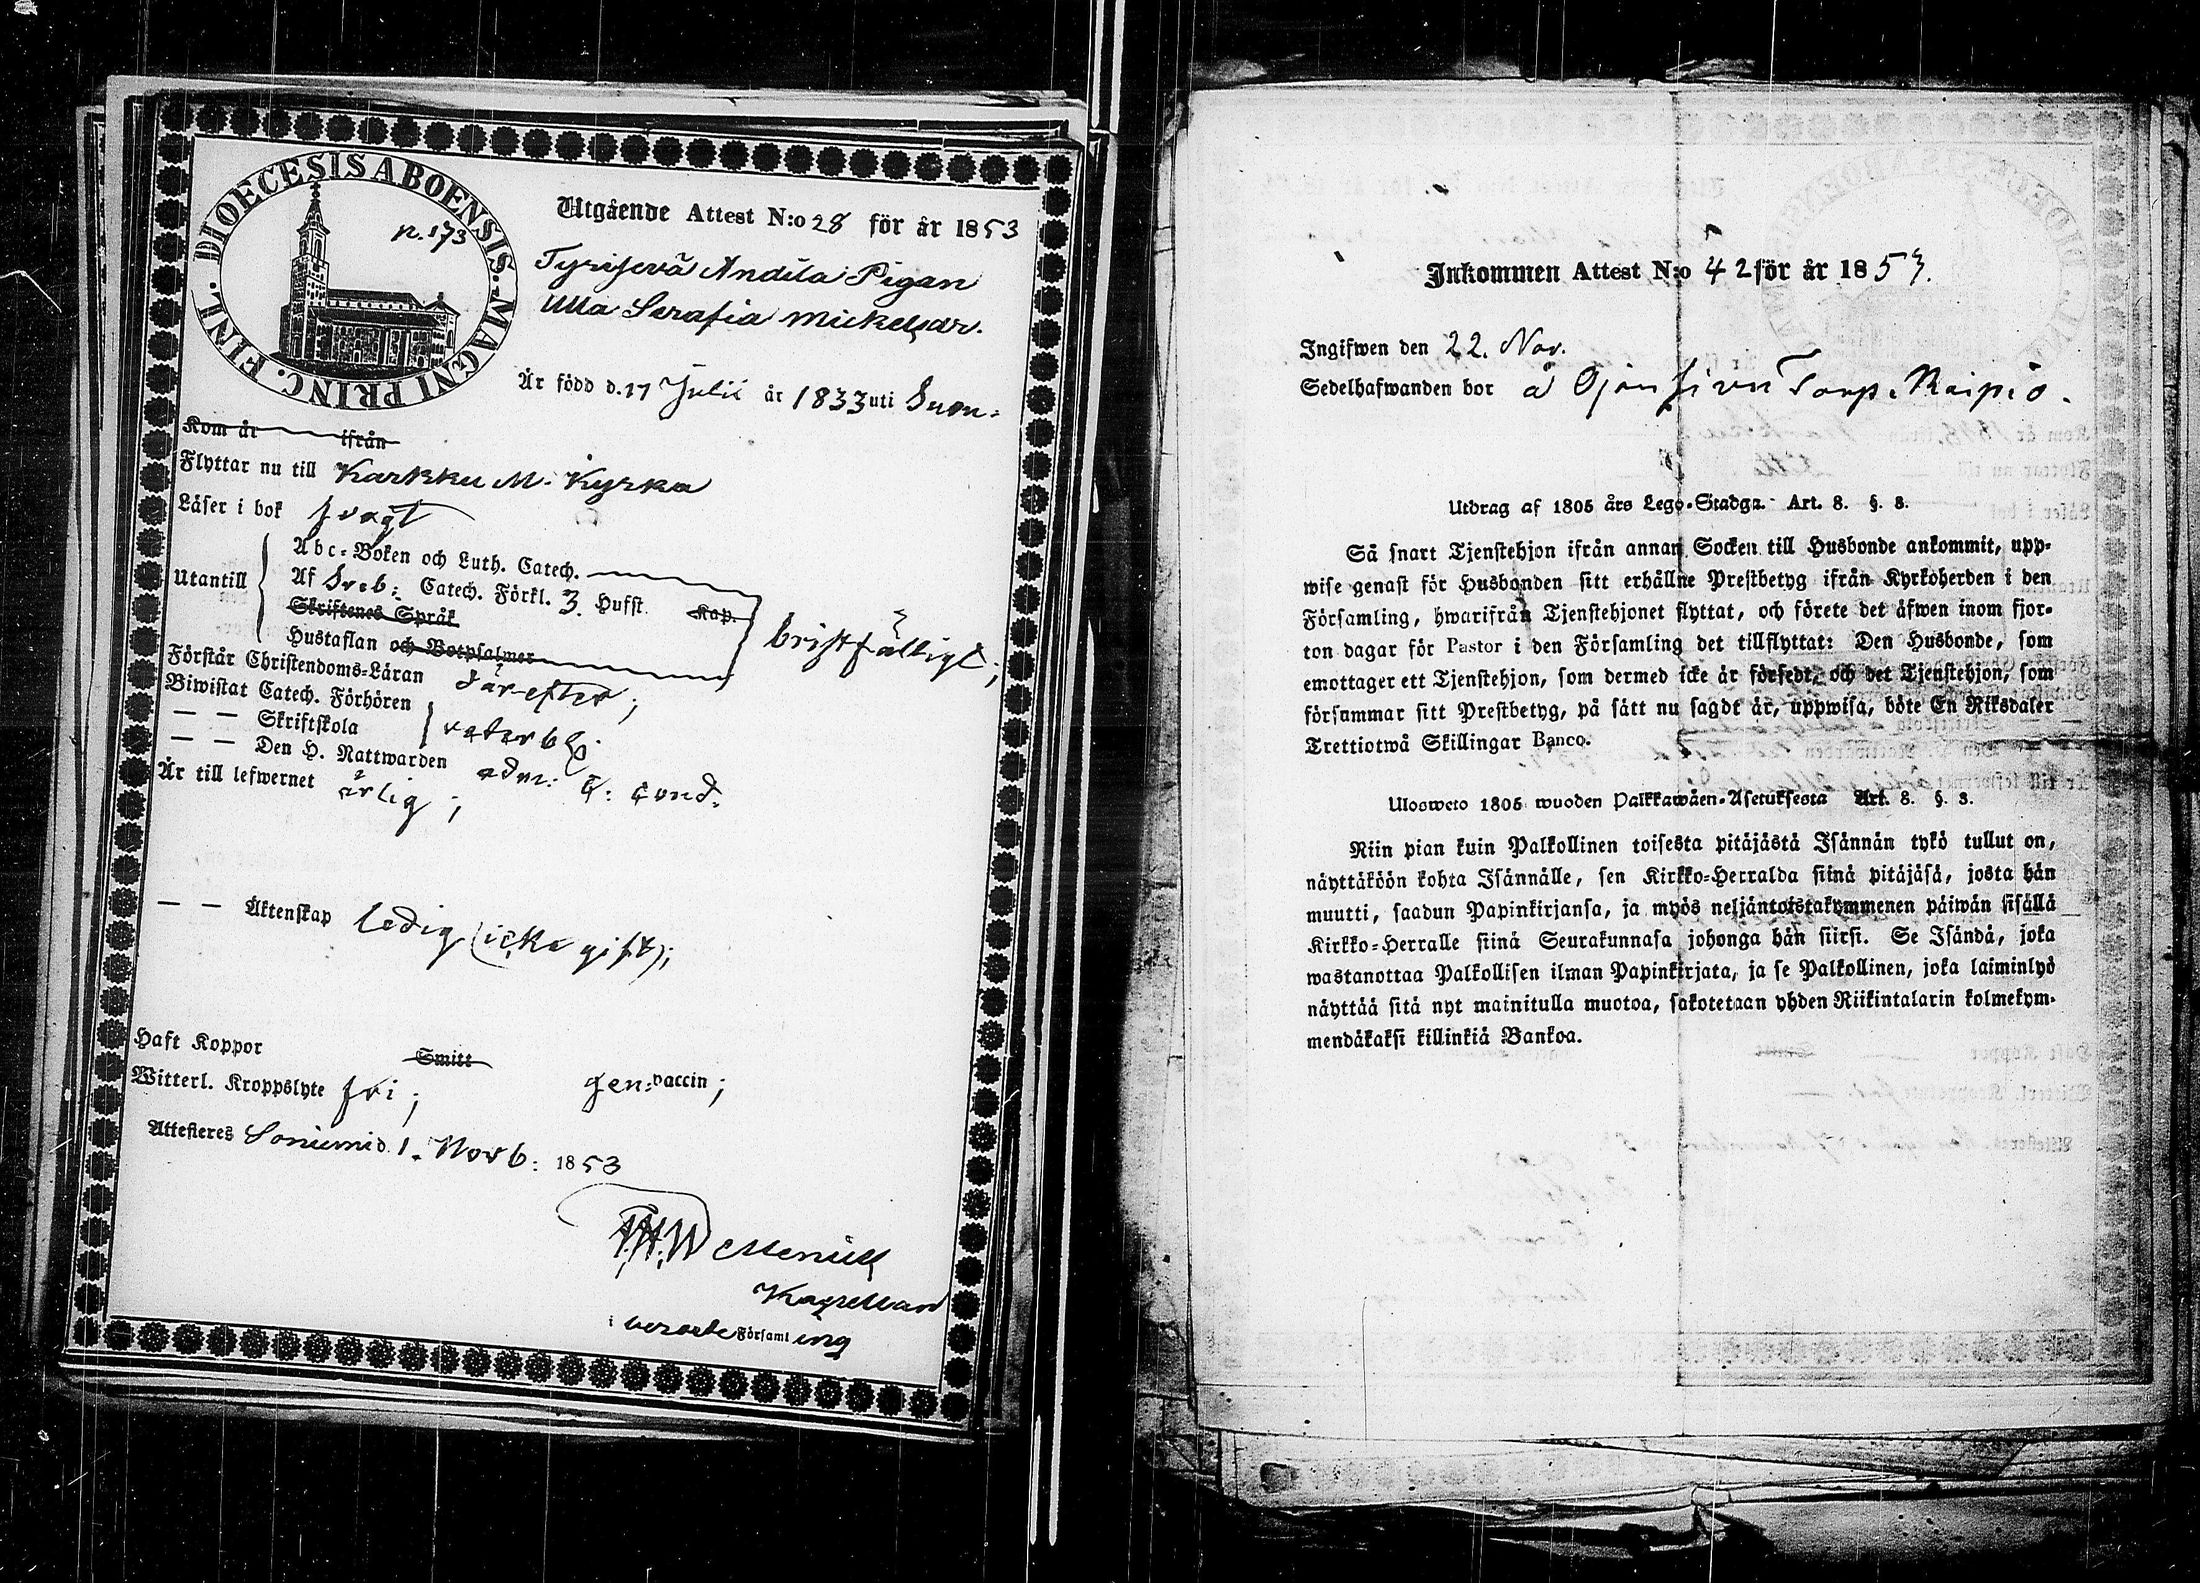 DIOECESIS ABOENSIS. MAGNI PRINC. FINL.
p. 173
Utgående Attest N:o 28 för år 1853
Tyrisevä Andila Pigan
Ulla Serafia Mickelsdr.
Är född d. 17 Julii år 1833 uti Suon=
Kom år ifrån
Flyttar nu till Karkku M. Kyrka
Läser i bok svagt
Utantill
Abc=Boken och Luth. Catech.
Af Sveb: Catech. Förkl. 3. Hufst. Kap.
Skriftenes Språk
Hustaflan och Botpsalmer
bristfälligt;
Förstår Christendoms=Läran därefter;
Biwistat Catech. Förhören
— — Skriftskola
— — Den H. Nattwarden adm:
Är till lefwernet ärlig;
— — Äktenskap ledig (icke gift);
Haft Koppor Smitt gen: vaccin;
Witterl. Kroppslyte fri;
Attesteres Soniemi d. 1. Novb: 1853
Kapellan
i berörde Församling
Inkommen Attest N:o 42 för år 1853.
Ingifwen den 22. Nov.
Sedelhafwanden bor å Ojansivu Torp. Raipio.
Utdrag af 1805 års Lego=Stadga. Art. 8. §. 8.
Så snart Tjenstehjon ifrån annan Socken till Husbonde ankommit, upp=
wise genast för Husbonden sitt erhållne Prestbetyg ifrån Kyrkoherden i den
Församling, hwarifrån Tjenstehjonet flyttat, och förete det äfwen inom fjor=
ton dagar för Pastor i den Församling det tillflyttat: Den Husbonde, som
emottager ett Tjenstehjon, som dermed icke är försedt, och det Tjenstehjon, som
försummar sitt Prestbetyg, på sätt nu sagdt är, uppwisa, böte En Riksdaler
Trettiotwå Skillingar Banco.
Ulosweto 1805 wuoden Palkkawäen=Asetuksesta Art. 8. §. 8.
Niin pian kuin Palkollinen toisesta pitäjästä Isännän tykö tullut on,
näyttäköön kohta Isännälle, sen Kirkko=Herralda siinä pitäjäsä, josta hän
muutti, saadun Papinkirjansa, ja myös neljäntoistakymmenen päiwän sisällä
Kirkko=Herralle siinä Seurakunnasa johonga hän siirsi. Se Isändä, joka
wastanottaa Palkollisen ilman Papinkirjata, ja se Palkollinen, joka laiminlyö
näyttää sitä nyt mainitulla muotoa, sakotetaan yhden Riikintalarin kolmekym=
mendäkaksi killinkiä Bankoa.